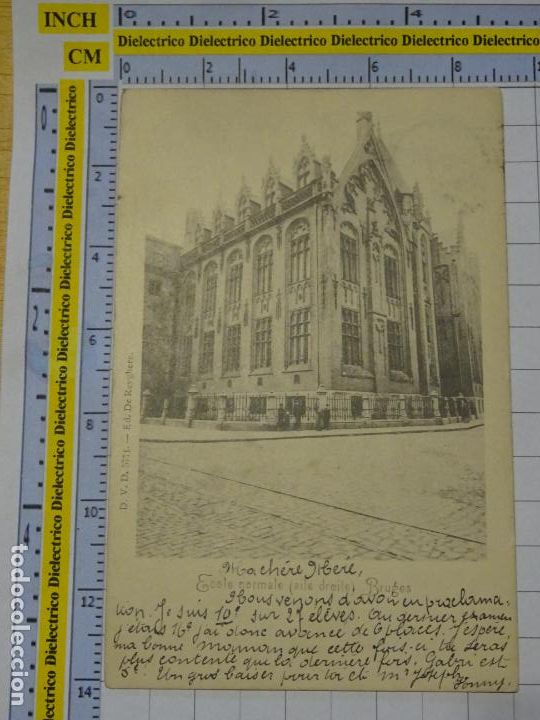 INCH
CM
0 2 4
Dielectrico Dielectrico Dielectrico Dielectrico Dielectrico Dielectrico
0 2 4 6 8
0
2
4
6
8
10
12
14
Dielectrico Dielectrico Dielectrico Dielectrico Dielectrico Dielectrico Dielectrico
D. V. D. 5771. — Ed. De Reyghere.
Ma chère Mère,
Ecole normale (aile droite) Bruges
Nous venons d'avoir en proclama-
tion. Je suis 10e sur 27 élèves. Au dernier examen
j'étais 16e j'ai donc avancé de 6 places. J'espère,
ma bonne maman que cette fois-ci tu seras
plus contente que la dernière fois. Gaby est
5e. Un gros baiser pour toi et Mr Joseph
todocoleccion